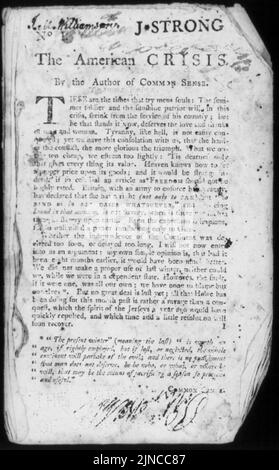 Williamson J. STRONG
The American CRISIS.
By the Author of COMMON SENSE.
THESE are the times that try mens souls: The sum-
mer soldier and the sunshine patriot will, in this
crisis, shrink from the service of his country; but
he that stands it now, deserves the love and thanks
of man and woman. Tyranny, like hell, is not easily con-
quered; yet we have this consolation with us, that the hard-
er the conflict, the more glorious the triumph. What we ob-
tain too cheap, we esteem too lightly: 'Tis dearness only
that gives every thing its value. Heaven knows how to set
a proper price upon its goods; and it would be strange in-
deed if so celestial an article as FREEDOM should not be
highly rated. Britain, with an army to enforce her tyranny,
has declared that she has a right
Whether the Independence of the Continent was de-
clared too soon, or delayed too long, I will not now enter
into as an argument; my own simple opinion is, that had it
been eight months earlier, it would have been much better.
We did not make a proper use of last winter, neither could
we, while we were in a dependent state. However, the fault,
if it were one, was all our own; we have none to blame but
ourselves*. But no great deal is lost yet; all that Howe has
been doing for this month past is rather a ravage than a con-
quest, which the spirit of the Jerseys a year ago would have
quickly repulsed, and which time and a little resolution will
soon recover. I
* "The present winter" (meaning the last) "is worth an
age, if rightly employed, but if lost, or neglected, the whole
continent will partake of the evil; and there is no punishment
that man does not deserve, be he who, or what, or where he
will, that may be the means of sacrificing a season so precious
and useful."
COMMON SENSE.
alamy
Image ID: 2JNCC87
www.alamy.com